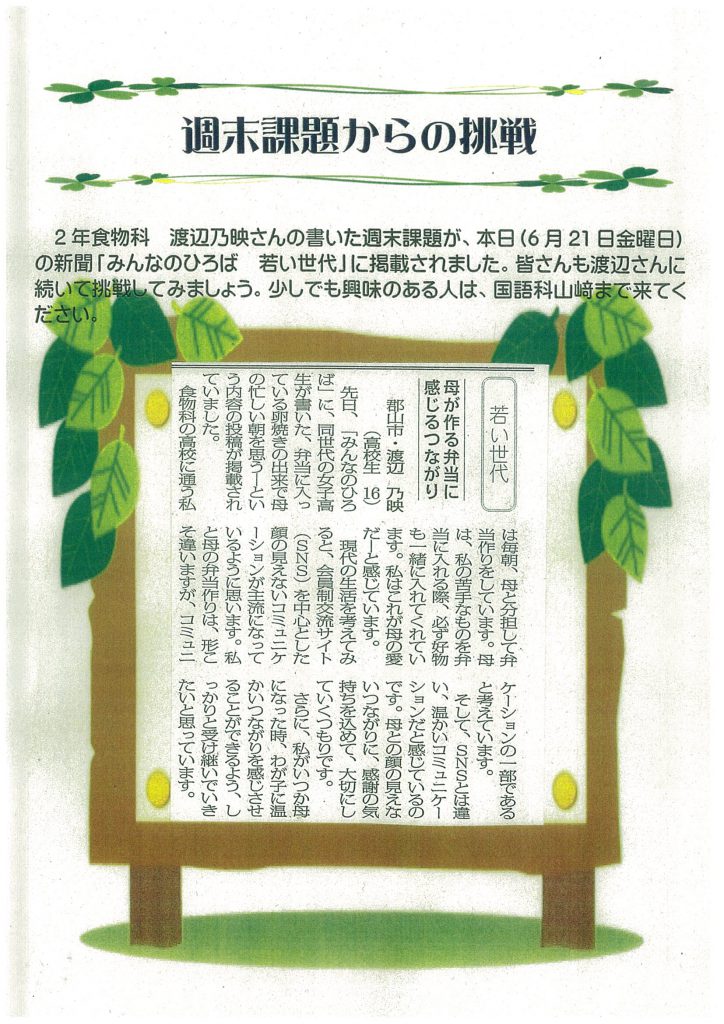 週末課題からの挑戦
2年食物科　渡辺乃映さんの書いた週末課題が、本日(6月21日金曜日)
の新聞「みんなのひろば　若い世代」に掲載されました。皆さんも渡辺さんに
続いて挑戦してみましょう。少しでも興味のある人は、国語科山﨑まで来てく
ださい。
若い世代
母が作る弁当に
感じるつながり
郡山市・渡辺　乃映
（高校生　16）
先日、「みんなのひろ
ば」に、同世代の女子高
生が書いた、弁当に入っ
ている卵焼きの出来で母
の忙しい朝を思う―とい
う内容の投稿が掲載され
ていました。
食物科の高校に通う私
は毎朝、母と分担して弁
当作りをしています。母
は、私の苦手なものを弁
当に入れる際、必ず好物
も一緒に入れてくれてい
ます。私はこれが母の愛
だ―と感じています。
現代の生活を考えてみ
ると、会員制交流サイト
（SNS）を中心とした
顔の見えないコミュニケ
ーションが主流になって
いるように思います。私
と母の弁当作りは、形こ
そ違いますが、コミュニ
ケーションの一部である
と考えています。
そして、SNSとは違
い、温かいコミュニケー
ションだと感じているの
です。母との顔の見えな
いつながりに、感謝の気
持ちを込めて、大切にし
ていくつもりです。
さらに、私がいつか母
になった時、わが子に温
かいつながりを感じさせ
ることができるよう、し
っかりと受け継いでいき
たいと思っています。